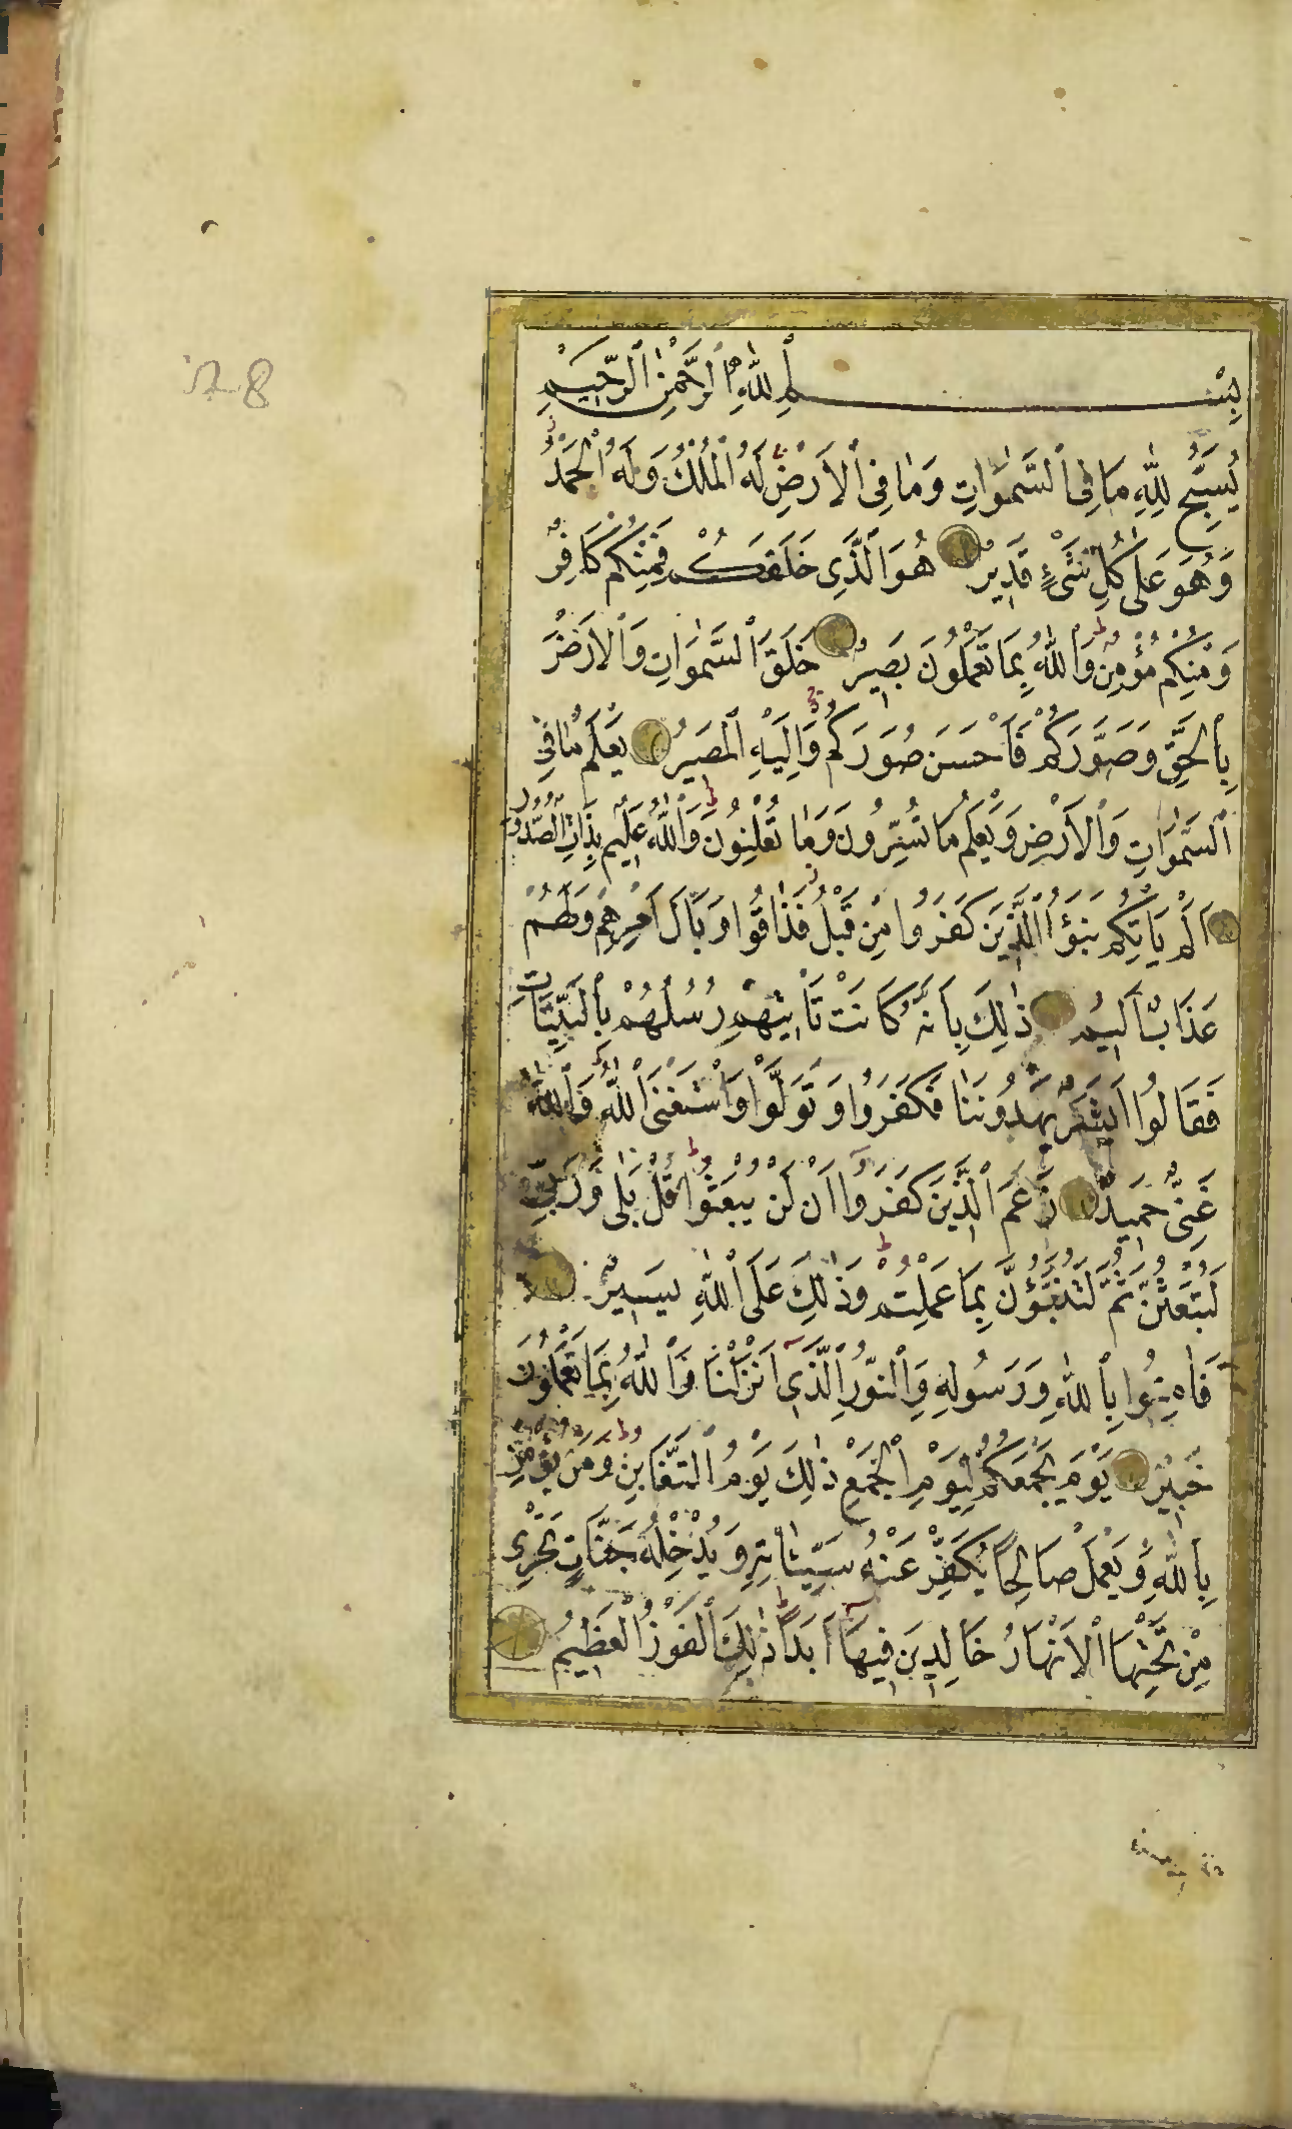 بِسْمِ اللّٰهِ الرَّحْمٰنِ الرَّحِيمِ
يُسَبِّحُ لِلّٰهِ مَا فِى السَّمٰوَاتِ وَمَا فِى الْاَرْضِ لَهُ الْمُلْكُ وَلَهُ الْحَمْدُ
وَهُوَ عَلٰى كُلِّ شَىْءٍ قَدِيرٌ هُوَ الَّذِى خَلَقَكُمْ فَمِنْكُمْ كَافِرٌ
وَمِنْكُمْ مُؤْمِنٌ وَاللّٰهُ بِمَا تَعْمَلُونَ بَصِيرٌ خَلَقَ السَّمٰوَاتِ وَالْاَرْضَ
بِالْحَقِّ وَصَوَّرَكُمْ فَاَحْسَنَ صُوَرَكُمْ وَاِلَيْهِ الْمَصِيرُ يَعْلَمُ مَا فِى
السَّمٰوَاتِ وَالْاَرْضِ وَيَعْلَمُ مَا تُسِرُّونَ وَمَا تُعْلِنُونَ وَاللّٰهُ عَلِيمٌ بِذَاتِ الصُّدُورِ
اَلَمْ يَاْتِكُمْ نَبَؤُا الَّذِينَ كَفَرُوا مِنْ قَبْلُ فَذَاقُوا وَبَالَ اَمْرِهِمْ وَلَهُمْ
عَذَابٌ اَلِيمٌ ذٰلِكَ بِاَنَّهُ كَانَتْ تَاْتِيهِمْ رُسُلُهُمْ بِالْبَيِّنَاتِ
فَقَالُوا اَبَشَرٌ يَهْدُونَنَا فَكَفَرُوا وَتَوَلَّوْا وَاسْتَغْنَى اللّٰهُ وَاللّٰهُ
غَنِىٌّ حَمِيدٌ زَعَمَ الَّذِينَ كَفَرُوا اَنْ لَنْ يُبْعَثُوا قُلْ بَلٰى وَرَبِّى
لَتُبْعَثُنَّ ثُمَّ لَتُنَبَّؤُنَّ بِمَا عَمِلْتُمْ وَذٰلِكَ عَلَى اللّٰهِ يَسِيرٌ
فَاٰمِنُوا بِاللّٰهِ وَرَسُولِهِ وَالنُّورِ الَّذِى اَنْزَلْنَا وَاللّٰهُ بِمَا تَعْمَلُونَ
خَبِيرٌ يَوْمَ يَجْمَعُكُمْ لِيَوْمِ الْجَمْعِ ذٰلِكَ يَوْمُ التَّغَابُنِ وَمَنْ يُؤْمِنْ
بِاللّٰهِ وَيَعْمَلْ صَالِحًا يُكَفِّرْ عَنْهُ سَيِّئَاتِهِ وَيُدْخِلْهُ جَنَّاتٍ تَجْرِى
مِنْ تَحْتِهَا الْاَنْهَارُ خَالِدِينَ فِيهَا اَبَدًا ذٰلِكَ الْفَوْزُ الْعَظِيمُ